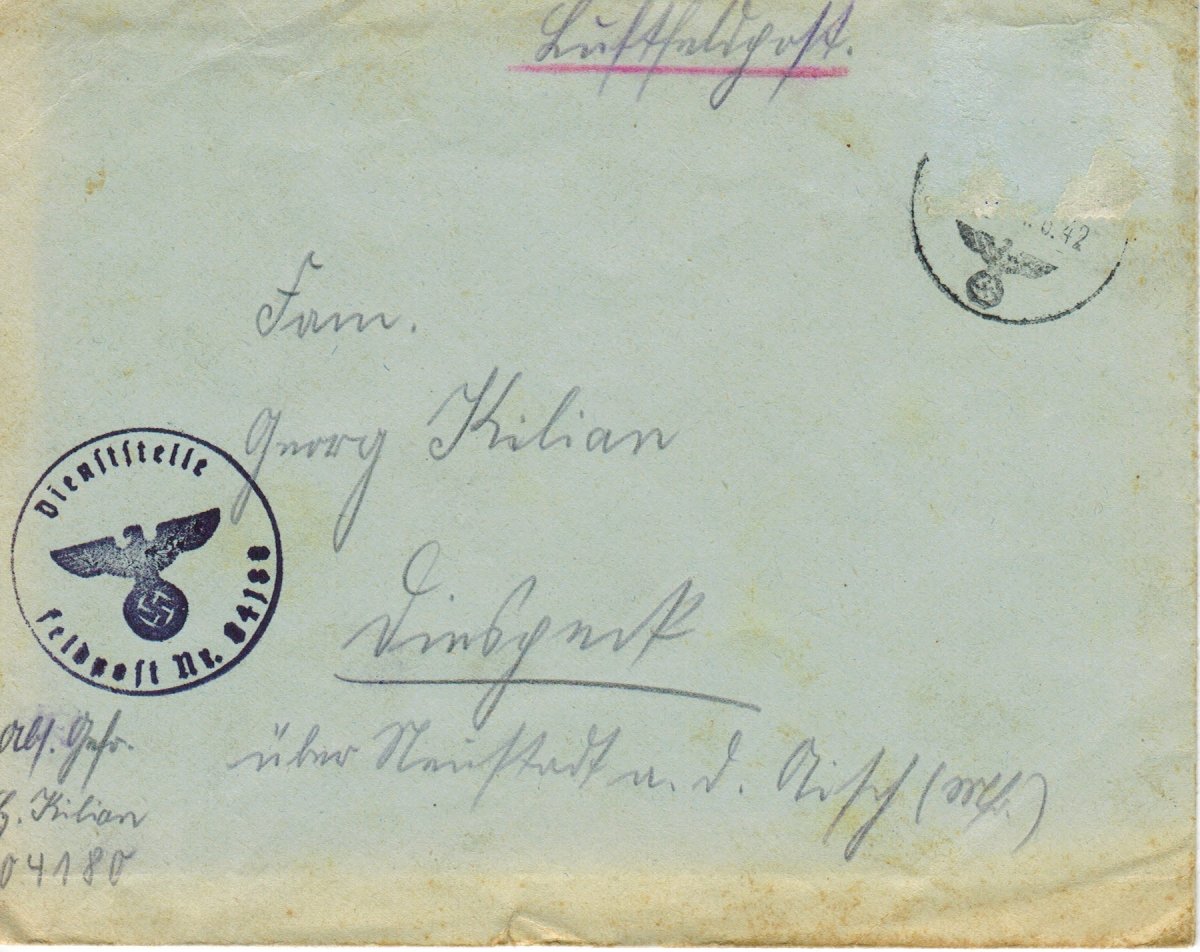 Luftfeldpost.
6.42
Fam.
Georg Kilian
Diespeck
über Neustadt a. d. Aisch (Mfr.)
Dienststelle
Feldpost Nr. 04180
Abs. Gefr.
G. Kilian
04180